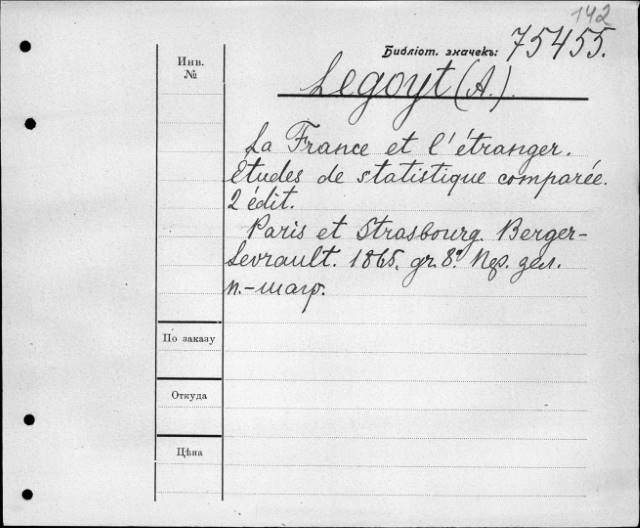 142
Библіот. значекъ: 75455.
Инв.
№
Legoyt (A.).
La France et l'étranger.
Études de statistique comparée.
2 édit.
Paris et Strasbourg. Berger-
Levrault. 1865. gr. 8º. Пер. зел.
п.-шагр.
По заказу
Откуда
Цѣна